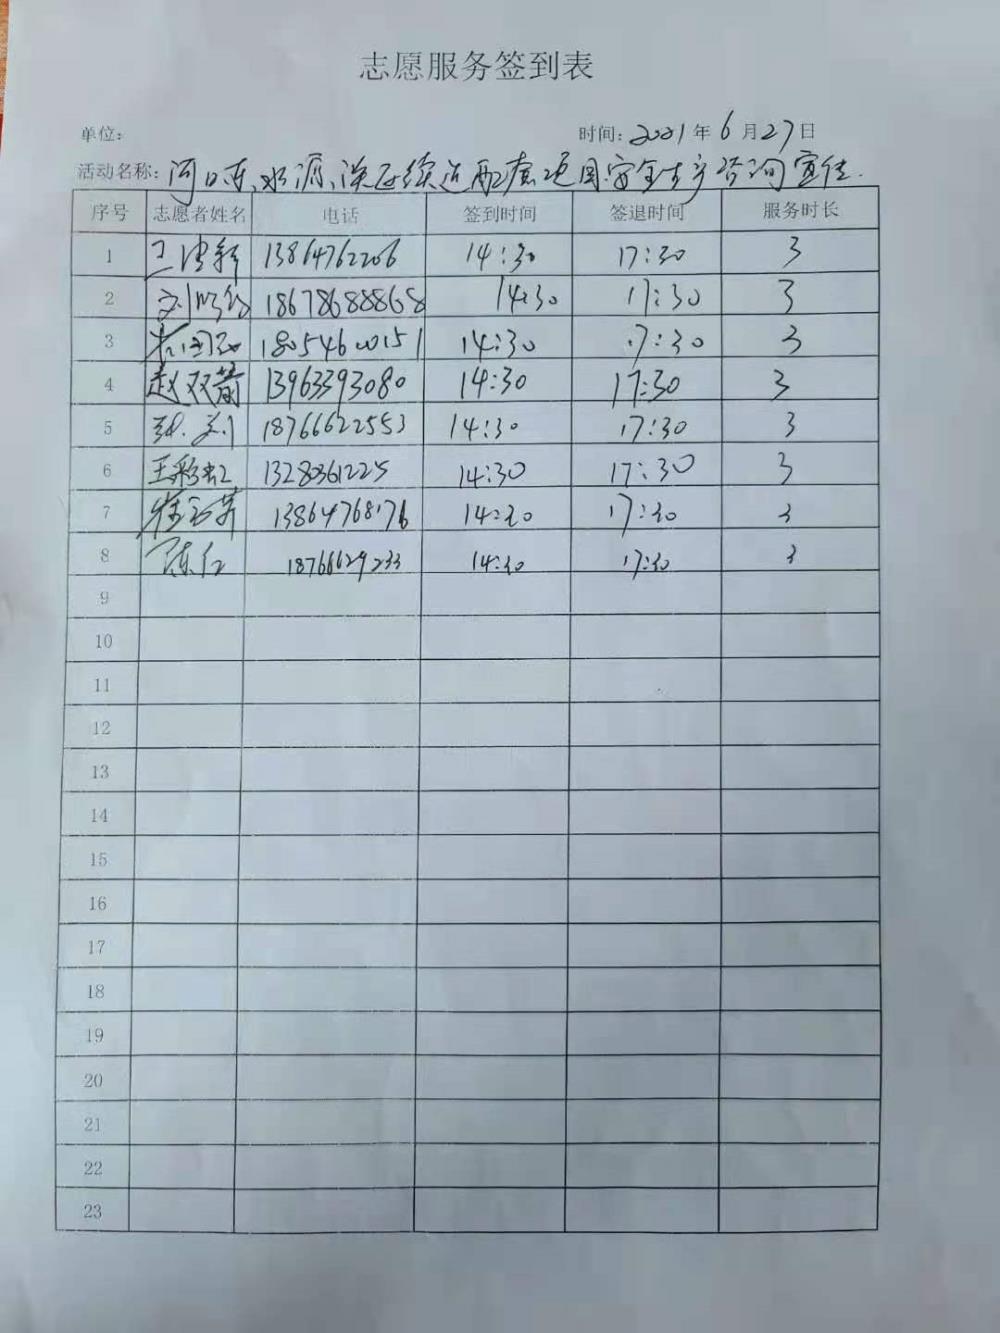 志愿服务签到表
单位: 时间: 2021年6月27日
活动名称: 河口
序号 志愿者姓名 电话 签到时间 签退时间 服务时长
1 13864762206 14:30 17:30 3
2 18678688868 14:30 17:30 3
3 18054600151 14:30 17:30 3
4 赵双 13963393080 14:30 17:30 3
5 18766622553 14:30 17:30 3
6 王彩虹 13280361225 14:30 17:30 3
7 13864768176 14:30 17:30 3
8 陈红 18766629233 14:30 17:30 3
9
10
11
12
13
14
15
16
17
18
19
20
21
22
23